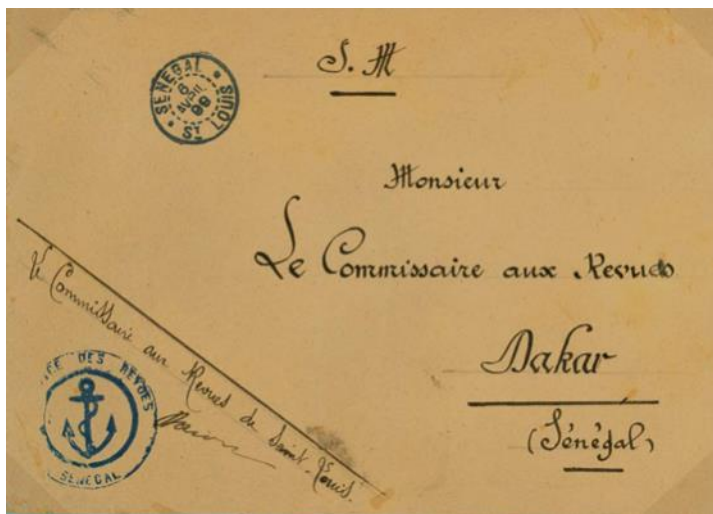 S. M
SENEGAL
6
AVRIL
99
ST LOUIS
Monsieur
Le Commissaire aux Revues
Dakar
(Sénégal)
Le Commissaire aux Revues de Saint-Louis.
DES REVUES
SENEGAL